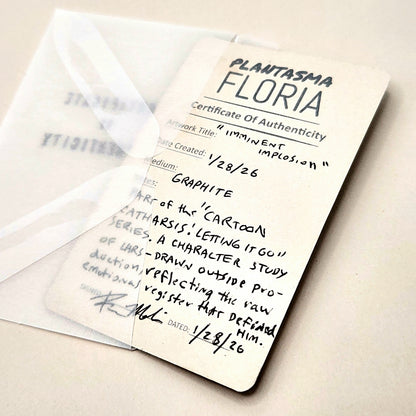 PLANTASMA
FLORIA
Certificate Of Authenticity
Artwork Title: "IMMINENT
IMPLOSION"
Date Created: 1/28/26
Medium:
GRAPHITE
Notes:
PART of the "CARTOON
CATHARSIS: LETTING IT GO"
SERIES. A CHARACTER STUDY
OF LARS - DRAWN OUTSIDE PRO-
duction, reflecting the raw
emotional register that DEFINED
HIM.
SIGNED:
DATED: 1/28/26